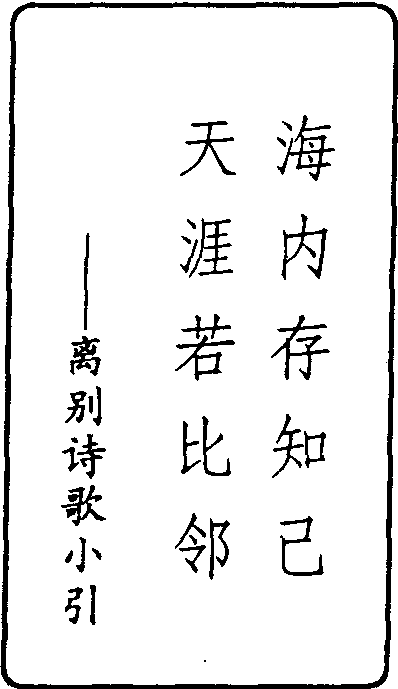 海内存知己
天涯若比邻
——离别诗歌小引